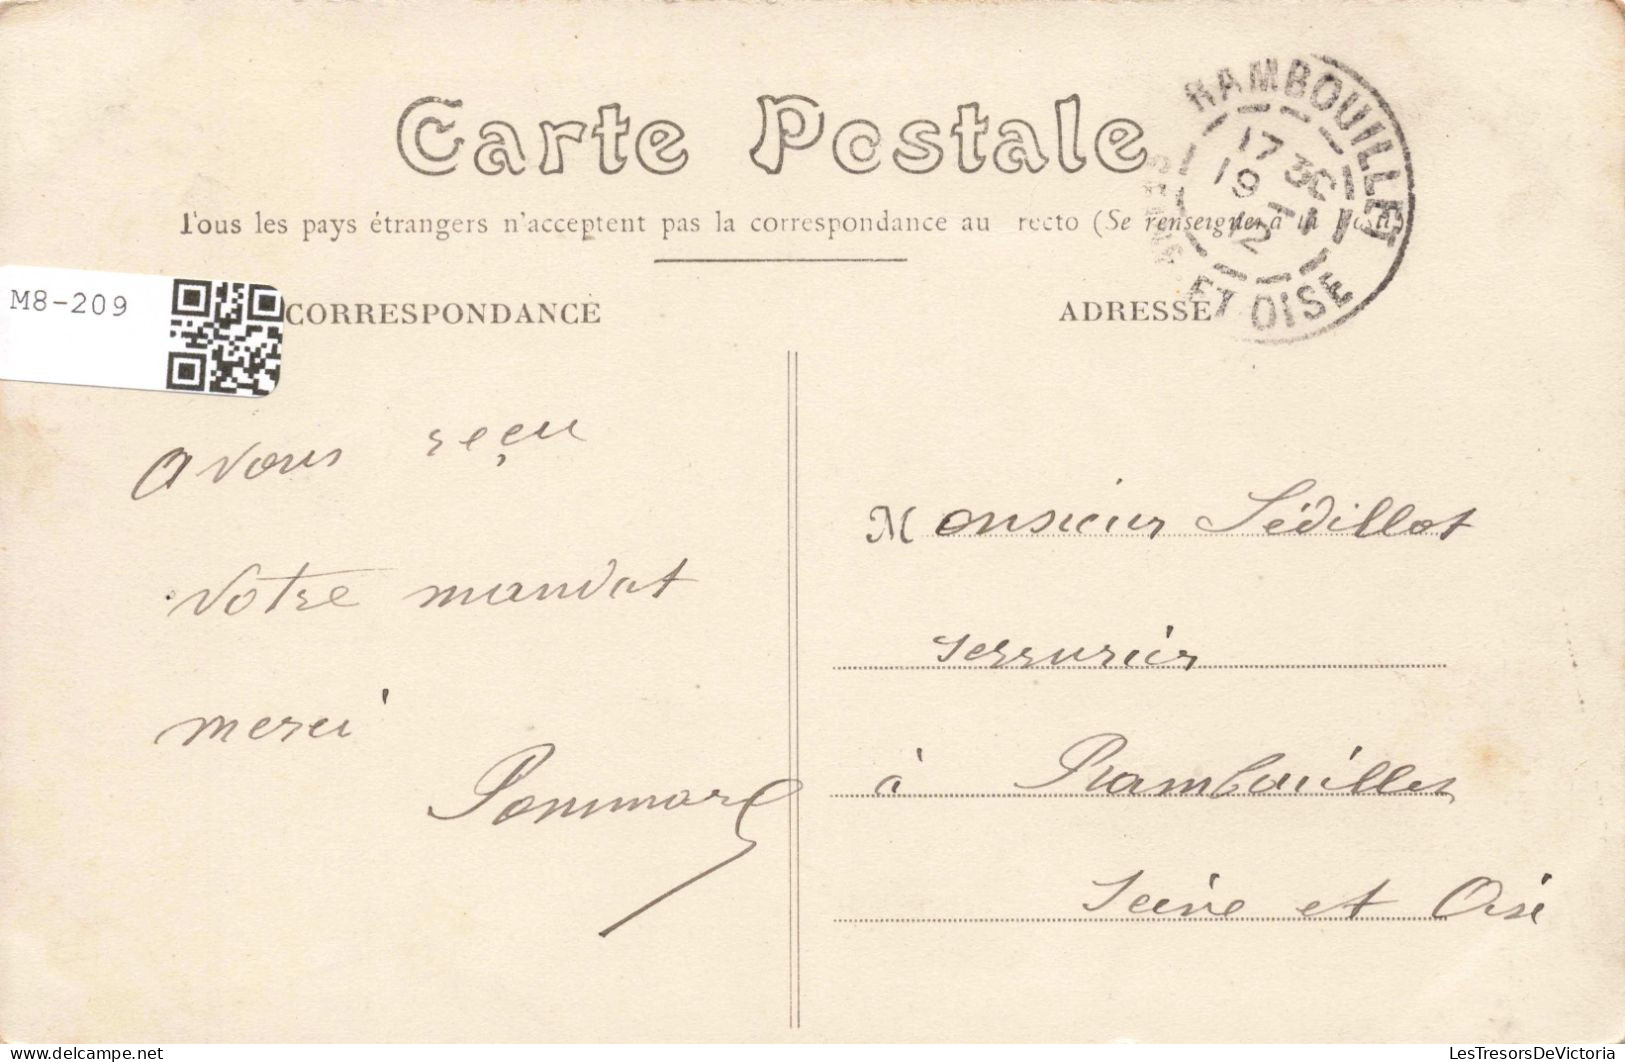 Carte Postale
Tous les pays étrangers n'acceptent pas la correspondance au recto (Se renseigner à la Poste)
RAMBOUILLET
17 30
19 - 1
12
SEINE ET OISE
M8-209
CORRESPONDANCE
ADRESSE
avons reçu
votre mandat
merci
Pommard
Monsieur Sédillot
serrurier
à Rambouillet
Seine et Oise
LesTresorsDeVictoria